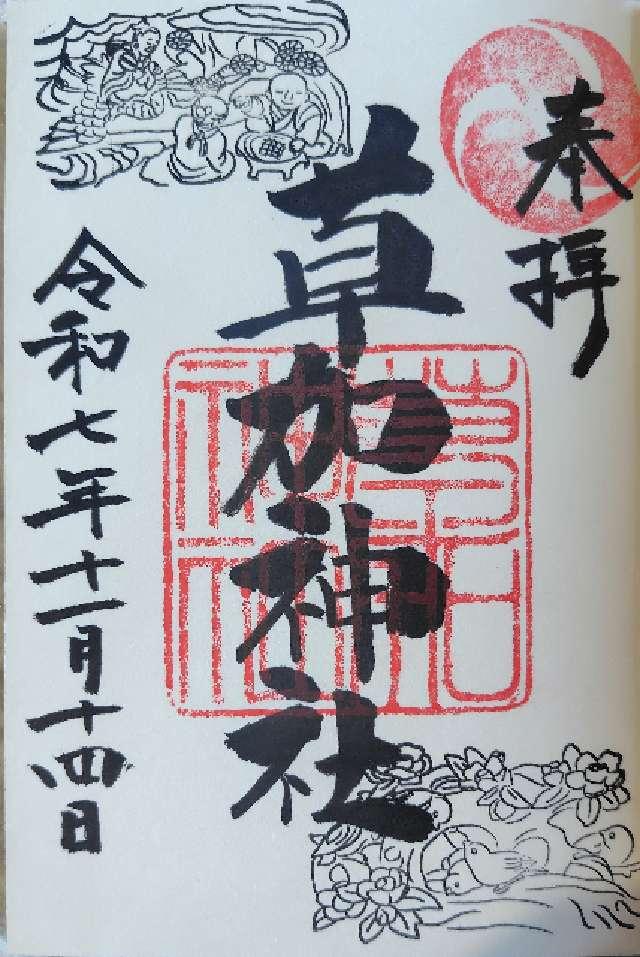 奉拝
草加神社
令和七年十一月十四日